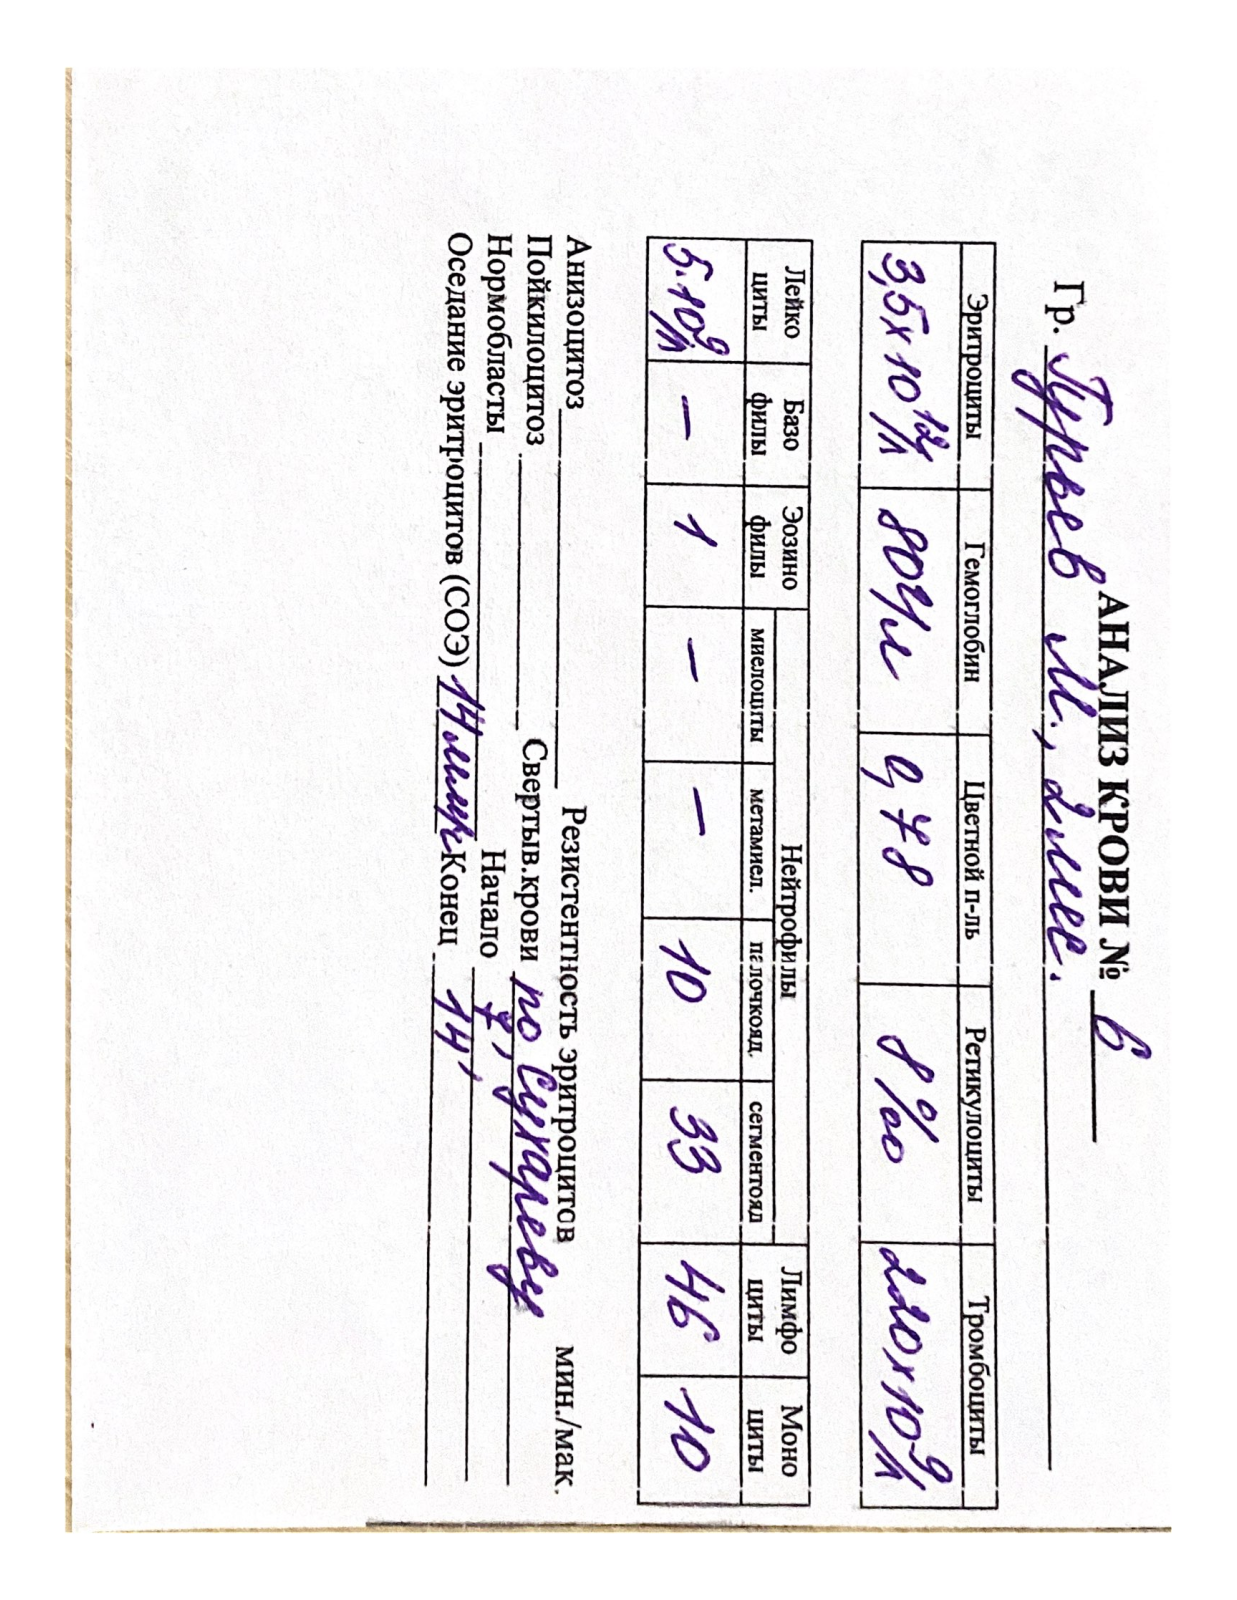 АНАЛИЗ КРОВИ № 6
Гр. Гурьев М., 2 мес.
Эритроциты Гемоглобин Цветной п-ль Ретикулоциты Тромбоциты
3,5х10¹²/л 80г/л 0,78 8‰ 220х10⁹/л
Лейко циты Базо филы Эозино филы Нейтрофилы Лимфо циты Моно циты
миелоциты метамиел. палочкояд. сегментояд
5·10⁹/л — 1 — — 10 33 46 10
Анизоцитоз Резистентность эритроцитов мин./мак.
Пойкилоцитоз Свертыв.крови по Сухареву
Нормобласты Начало 7,
Оседание эритроцитов (СОЭ) 14 мм/ч Конец 14,